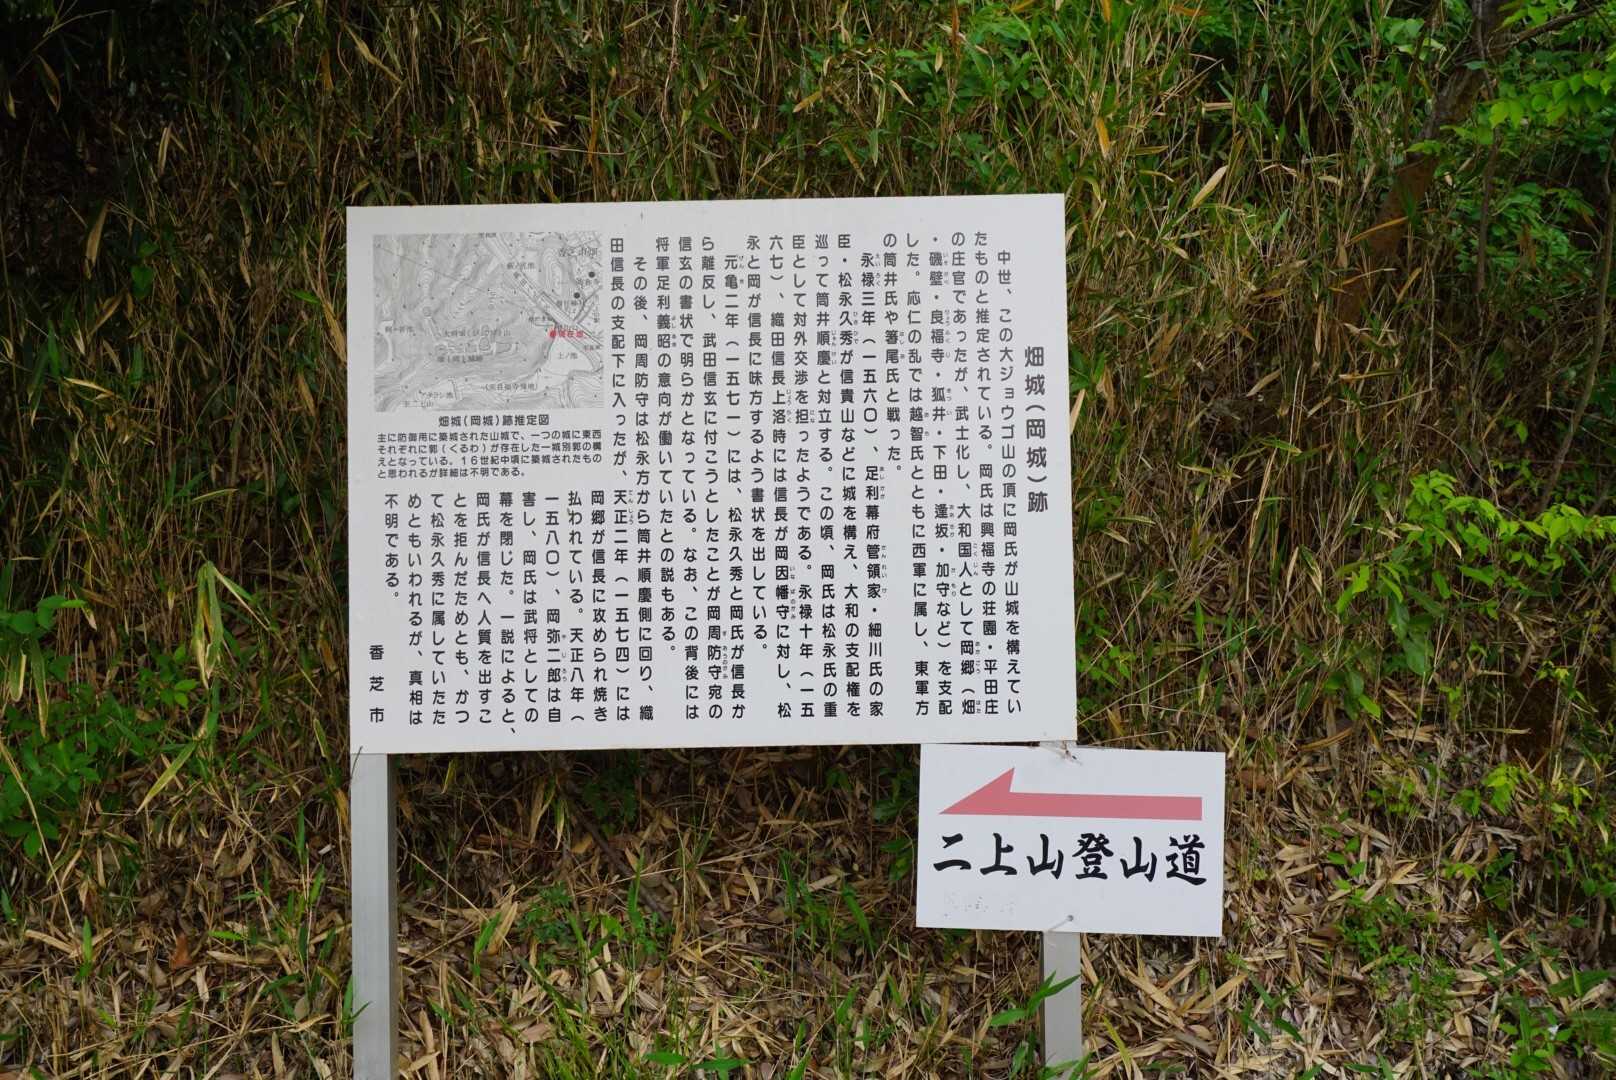 畑城(岡城)跡
中世、この大ジョウゴ山の頂に岡氏が山城を構えてい
たものと推定されている。岡氏は興福寺の荘園・平田庄
の庄官であったが、武士化し、大和国人として岡郷(畑
・磯壁・良福寺・狐井・下田・逢坂・加守など)を支配
した。応仁の乱では越智氏とともに西軍に属し、東軍方
の筒井氏や箸尾氏と戦った。
永禄三年(一五六〇)、足利幕府管領家・細川氏の家
臣・松永久秀が信貴山などに城を構え、大和の支配権を
巡って筒井順慶と対立する。この頃、岡氏は松永氏の重
臣として対外交渉を担ったようである。永禄十年(一五
六七)、織田信長上洛時には信長が岡因幡守に対し、松
永と岡が信長に味方するよう書状を出している。
元亀二年(一五七一)には、松永久秀と岡氏が信長か
ら離反し、武田信玄に付こうとしたことが岡周防守宛の
信玄の書状で明らかとなっている。なお、この背後には
将軍足利義昭の意向が働いていたとの説もある。
その後、岡周防守は松永方から筒井順慶側に回り、織
田信長の支配下に入ったが、天正二年(一五七四)には
岡郷が信長に攻められ焼き
払われている。天正八年(
一五八〇)、岡弥二郎は自
害し、岡氏は武将としての
幕を閉じた。一説によると、
岡氏が信長へ人質を出すこ
とを拒んだためとも、かつ
て松永久秀に属していたた
めともいわれるが、真相は
不明である。
香芝市
現在地
上ノ池
至二上山
畑城(岡城)跡推定図
主に防御用に築城された山城で、一つの城に東西
それぞれに郭(くるわ)が存在した一城別郭の構
えとなっている。16世紀中頃に築城されたもの
と思われるが詳細は不明である。
二上山登山道